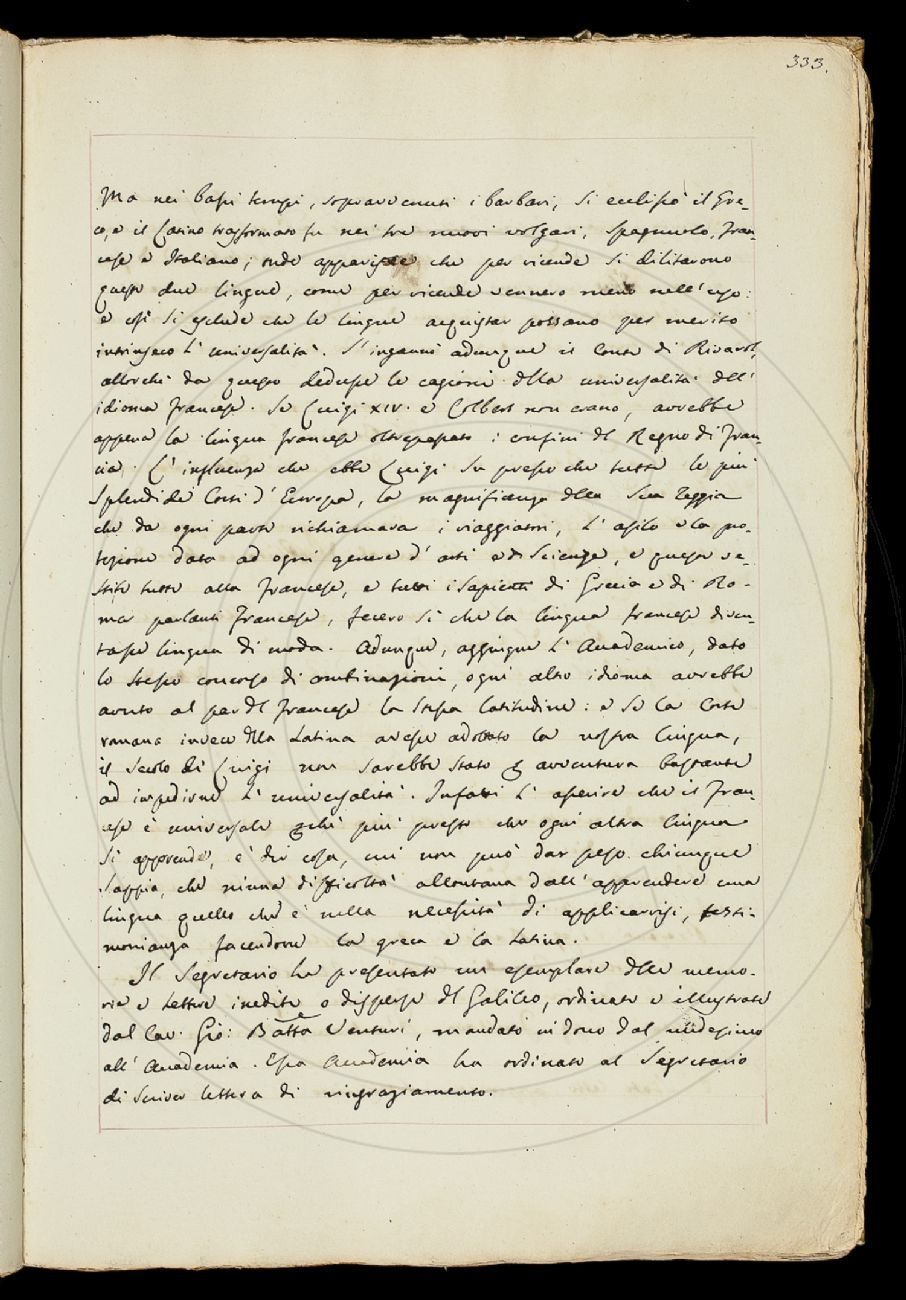 333.
Ma nei bassi tempi, sopravvenuti i barbari, si eclissò il Gre-
co, e il Latino trasformato fu nei tre nuovi volgari, Spagnuolo, Fran-
cese e Italiano; onde apparisce che per vicende si dilatarono
queste due lingue, come per vicende vennero meno nell'uso:
e così si esclude che le lingue acquistar possano per merito
intrinseco l'universalità. S'ingannò adunque il Conte di Rivarol,
allorchè da questo dedusse le cagioni della universalità dell'
idioma francese. Se Luigi XIV. e Colbert non erano, avrebbe
appena la lingua francese oltrepassato i confini del Regno di Fran-
cia. L'influenza che ebbe Luigi su presso che tutte le più
splendide Corti d'Europa, la magnificenza della sua Reggia
che da ogni parte richiamava i viaggiatori, l'asilo e la pro-
tezione data ad ogni genere d'arti e di Scienze, e queste ve-
stite tutte alla francese, e tutti i Sapienti di Grecia e di Ro-
ma parlanti francese, fecero sì che la lingua francese diven-
tasse lingua di moda. Adunque, aggiugne l'Accademico, dato
lo stesso concorso di combinazioni, ogni altro idioma avrebbe
avuto al par del francese la stessa latitudine: e se la Corte
romana invece della Latina avesse adottato la nostra lingua,
il Secolo di Luigi non sarebbe stato per avventura bastante
ad impedirne l'universalità. Infatti l'asserire che il Fran-
cese è universale perchè più presto che ogni altra lingua
si apprende, è dir cosa, cui non può dar peso chiunque
sappia, che niuna difficoltà allontana dall'apprendere una
lingua quello che è nella necessità di applicarvisi, testi-
monianza facendone la greca e la Latina.
Il Segretario ha presentato un esemplare delle memo-
rie e Lettere inedite o disperse del Galileo, ordinate e illustrate
dal Cav. Gio: Batta Venturi, mandato in dono dal medesimo
all'Accademia. Essa Accademia ha ordinato al Segretario
di scriver lettera di ringraziamento.